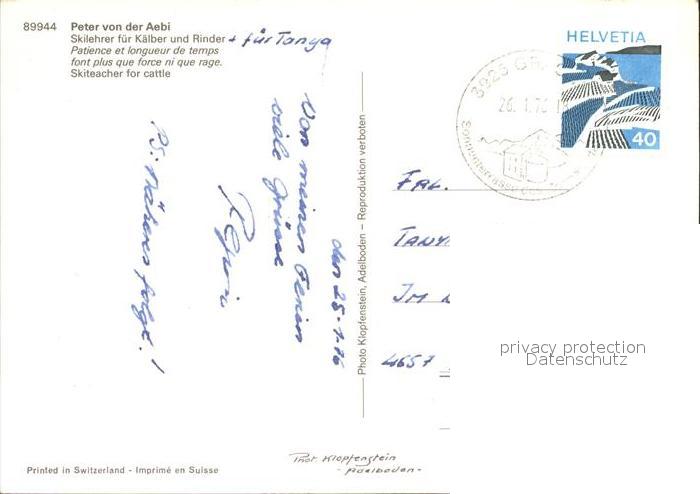 89944 Peter von der Aebi
Skilehrer für Kälber und Rinder + für Tanya
Patience et longueur de temps
font plus que force ni que rage.
Skiteacher for cattle
HELVETIA
40
26. 1. 76
den 25.1.76
Von meinen Ferien
viele Grüsse
PS: Näheres folgt!
Photo Klopfenstein, Adelboden – Reproduktion verboten
FRL.
TANY
IM
4657
privacy protection
Datenschutz
Phot. Klopfenstein
- Adelboden -
Printed in Switzerland - Imprimé en Suisse